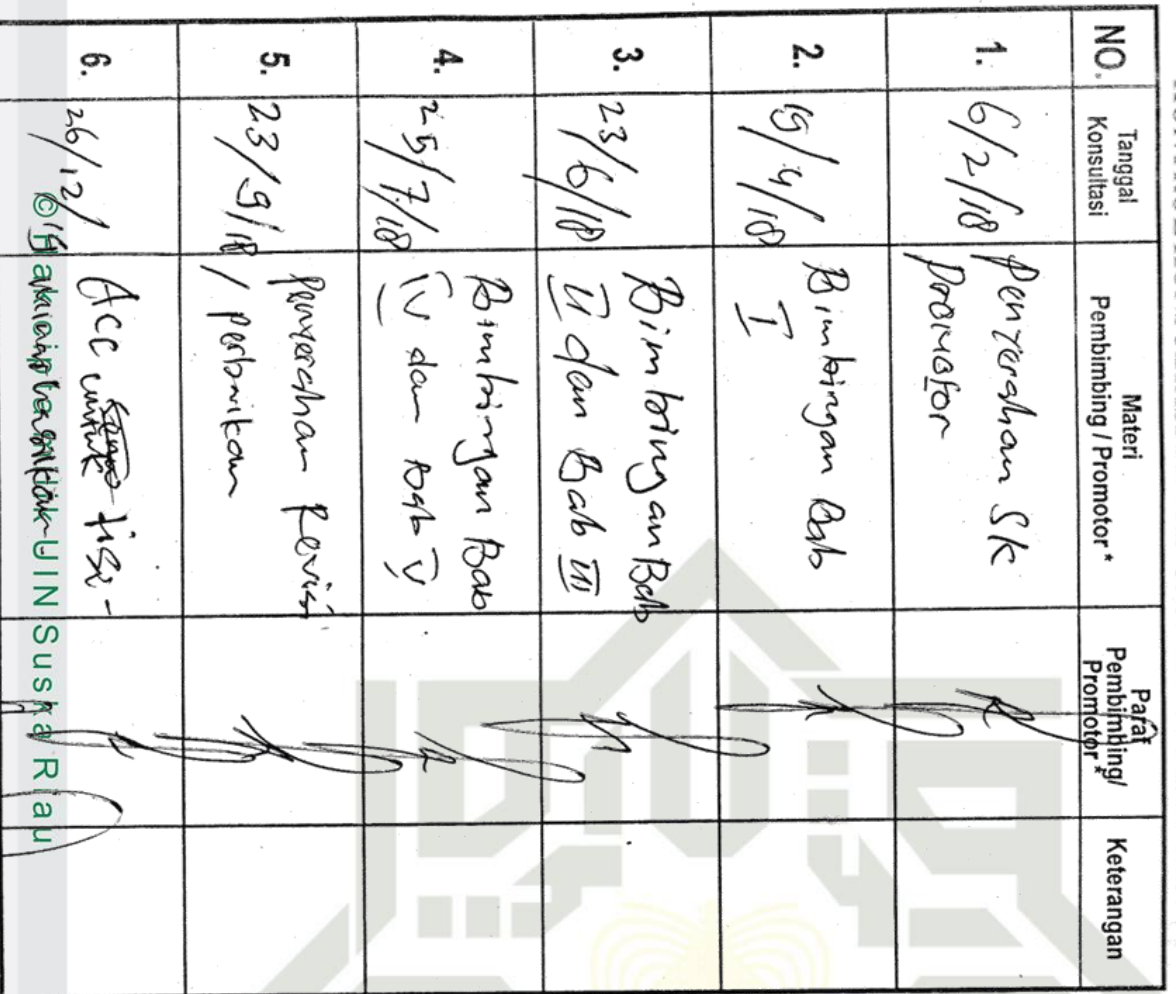 NO.
Tanggal
Konsultasi
Materi
Pembimbing / Promotor *
Paraf
Pembimbing/
Promotor *
Keterangan
1.
6/2/18
Penyerahan SK
Promotor
2.
19/4/18
Bimbingan Bab
I
3.
23/6/18
Bimbingan Bab
II dan Bab III
4.
25/7/18
Bimbingan Bab
IV dan Bab V
5.
23/9/18
Penyerahan Revisi
/ perbaikan
6.
26/12/
Acc untuk
© Hak cipta milik UIN Suska Riau